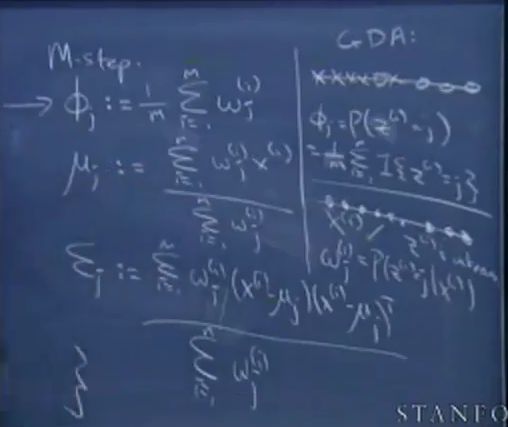 M-step.
→ ϕ_j := 1/m Σ_{i=1}^{m} w_j^{(i)}
μ_j := Σ_{i=1}^{m} w_j^{(i)} x^{(i)} / Σ_{i=1}^{m} w_j^{(i)}
Σ_j := Σ_{i=1}^{m} w_j^{(i)} (x^{(i)} - μ_j)(x^{(i)} - μ_j)^T / Σ_{i=1}^{m} w_j^{(i)}
}
GDA:
ϕ_j = P(z^{(i)} = j)
= 1/m Σ_{i=1}^{m} 1{z^{(i)} = j}
x^{(i)} / z^{(i)}
w_j^{(i)} = P(z^{(i)} = j | x^{(i)})
STANFO